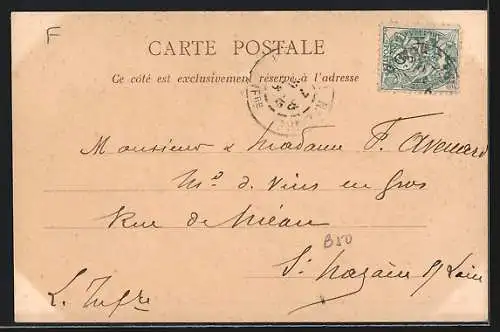 F
CARTE POSTALE
Ce côté est exclusivement réservé à l'adresse
Monsieur & Madame F. Avenard
Md. de Vins en Gros
Rue de Méan
B50
St Nazaire s/ Loire
L. Infre